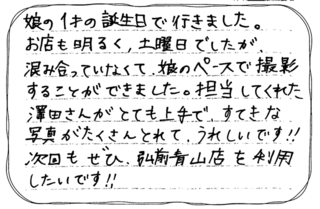 娘の1才の誕生日で行きました。
お店も明るく,土曜日でしたが、
混み合っていなくて、娘のペースで撮影
することができました。担当してくれた
澤田さんがとても上手で、すてきな
写真がたくさんとれて、うれしいです!!
次回も ぜひ、弘前青山店 を利用
したいです!!